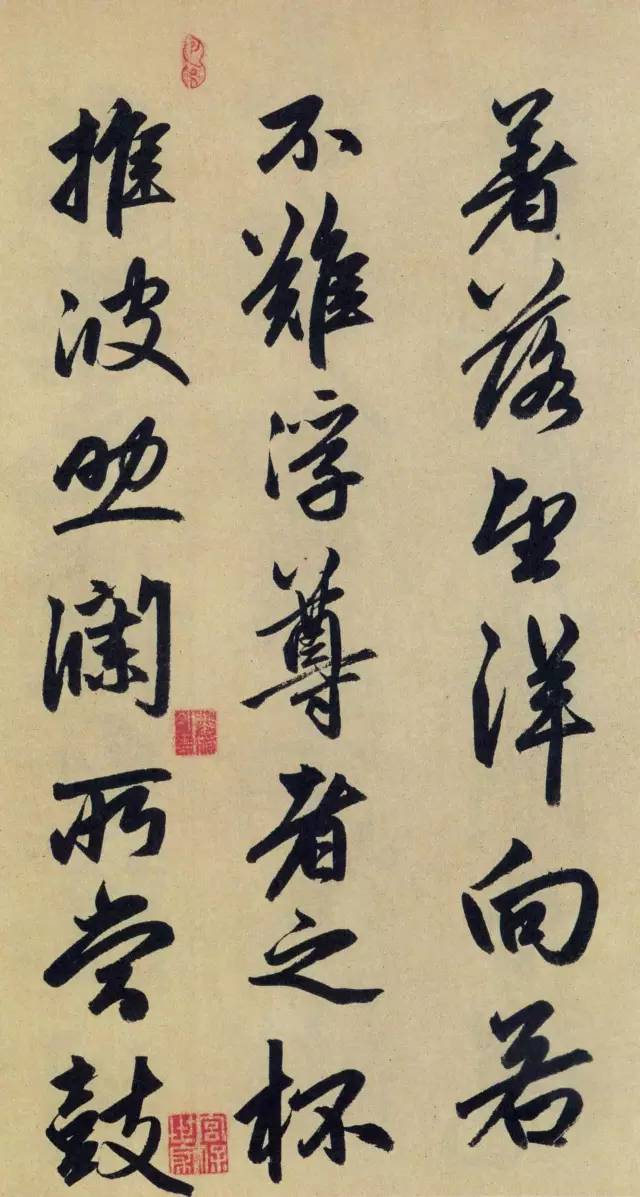 著落望洋向若
不難浮尊者之杯
推波助瀾所嘗鼓